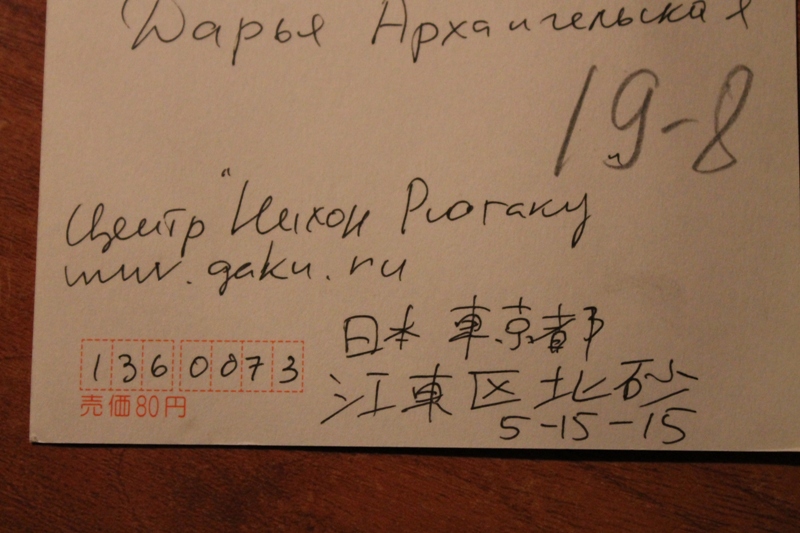 Дарья Архангельская
19-8
Центр "Нихон Рюгаку"
www.gaku.ru
日本 東京都
1360073
江東区北砂
売価80円
5-15-15